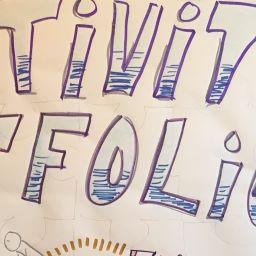 TiViT
TFOLi